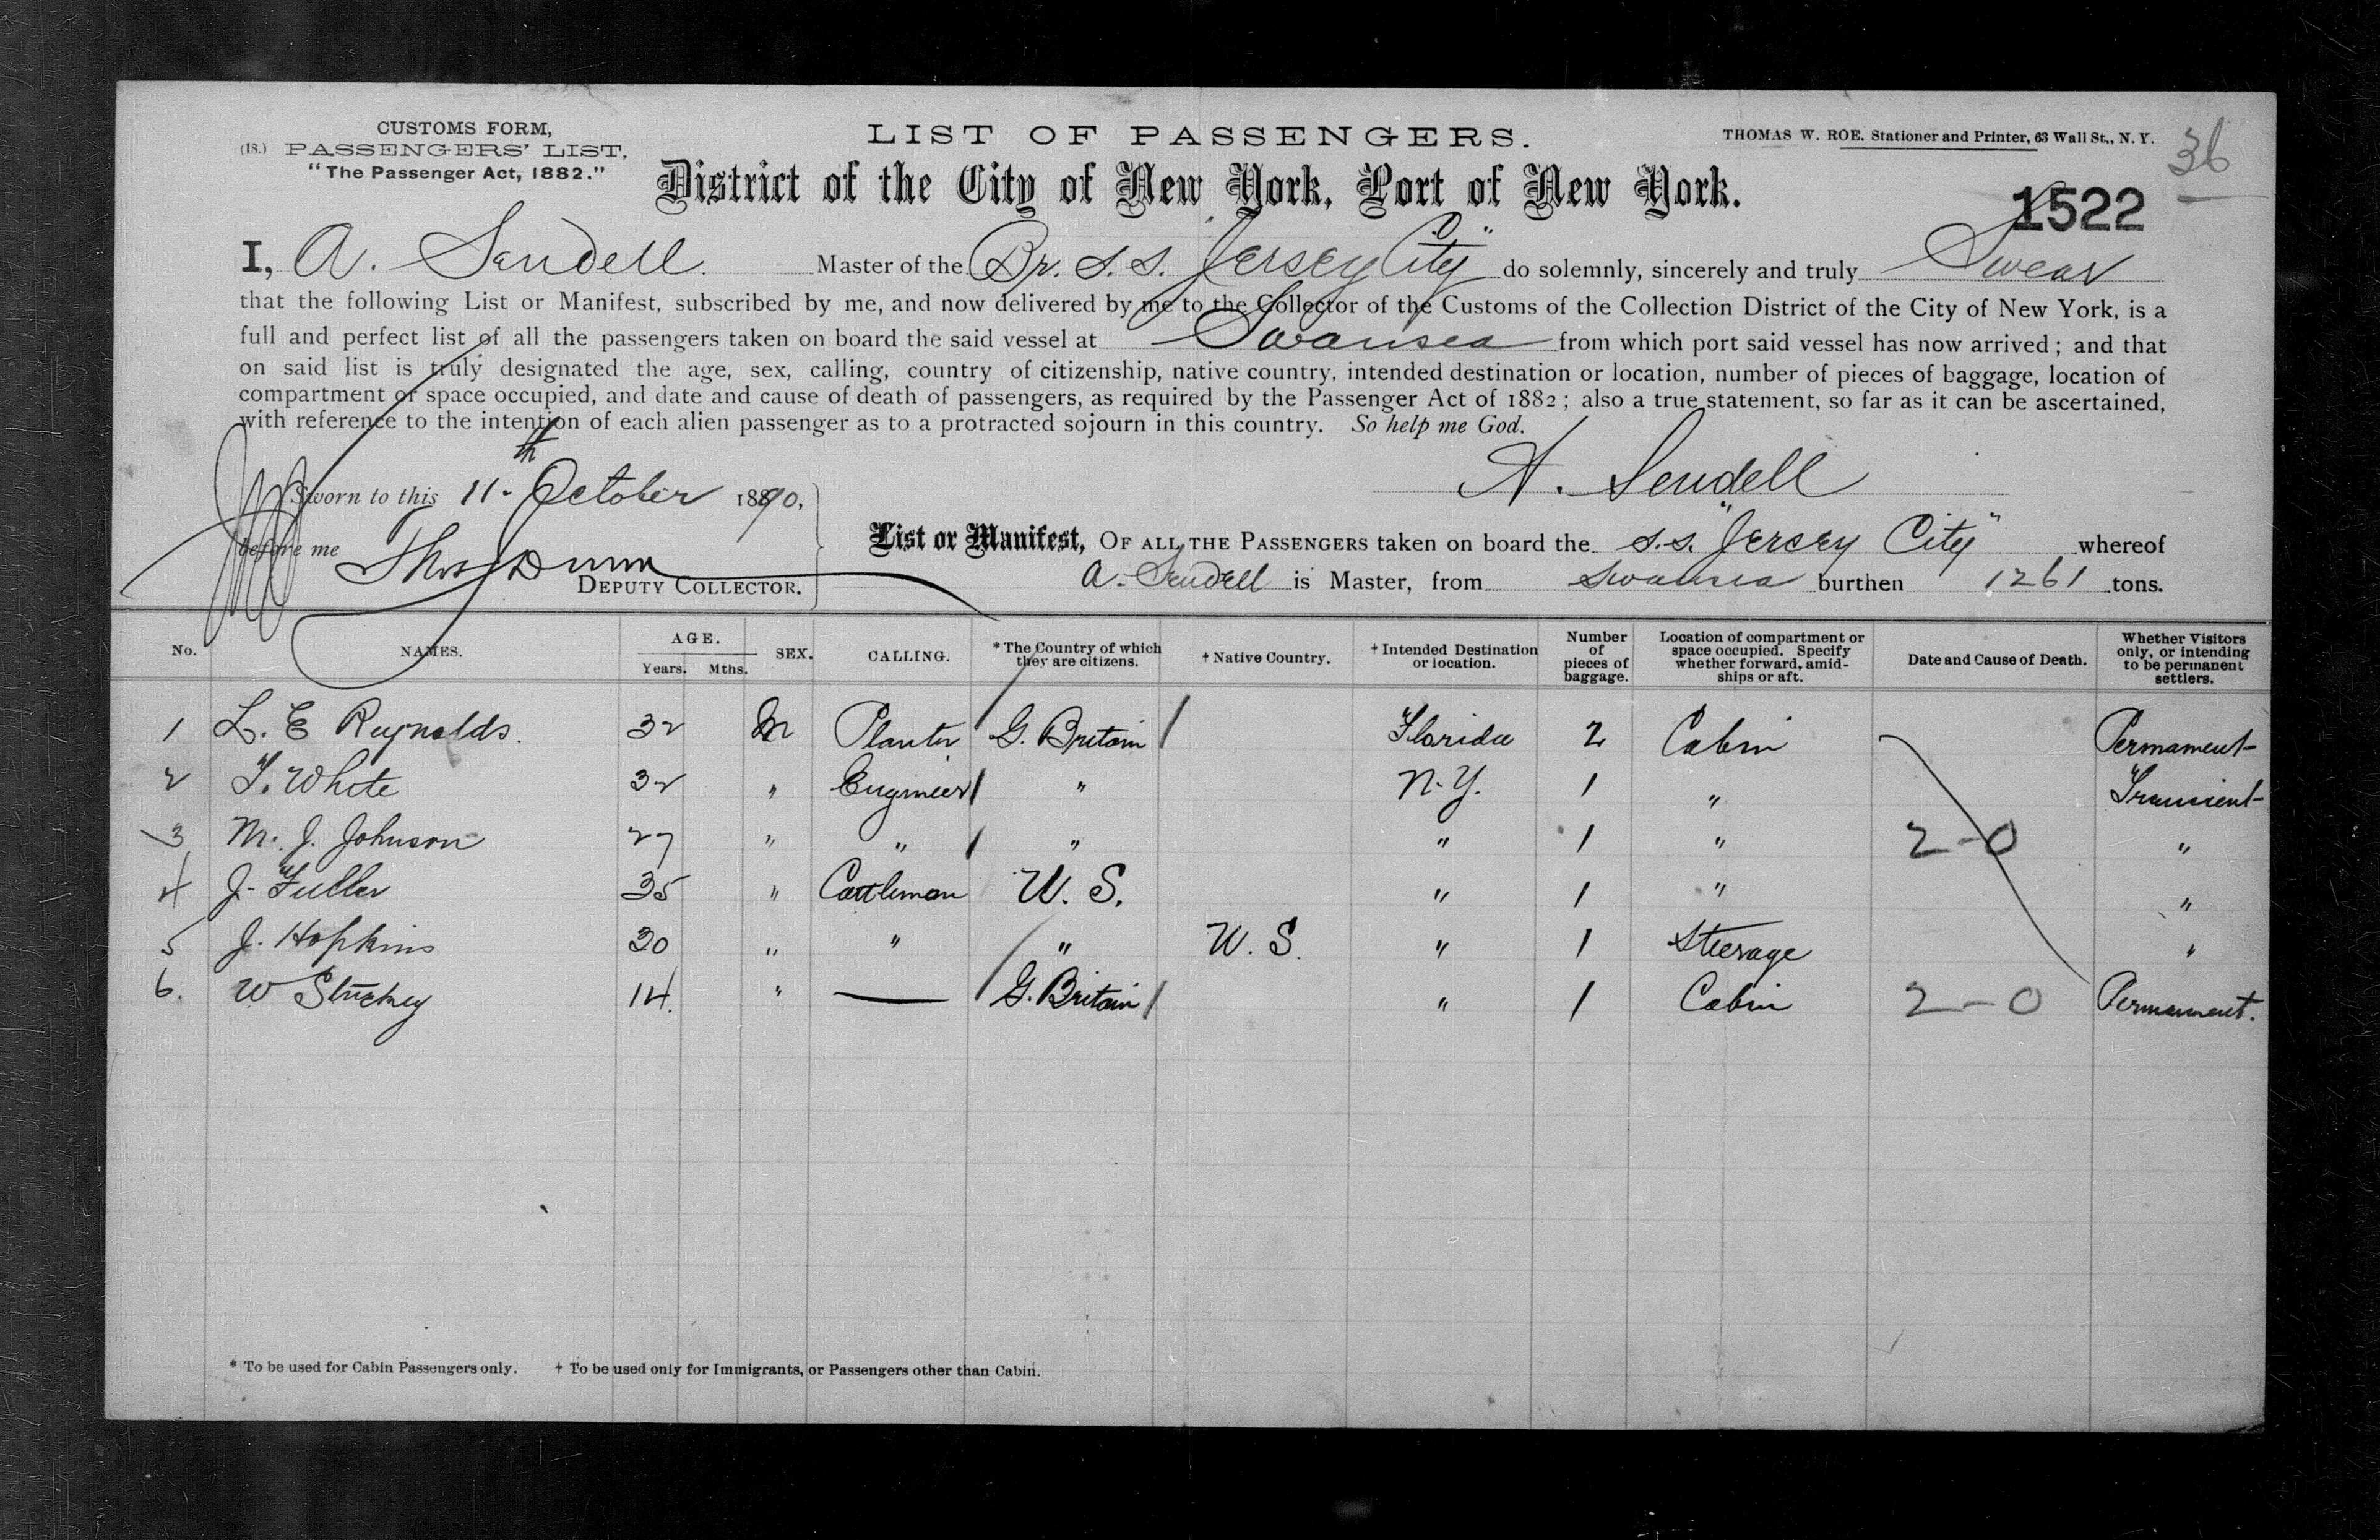 CUSTOMS FORM,
(18.) PASSENGERS' LIST,
"The Passenger Act, 1882."
LIST OF PASSENGERS.
THOMAS W. ROE. Stationer and Printer, 63 Wall St., N. Y.
36
District of the City of New York, Port of New York.
1522
I, A. Sendell Master of the Br. S.S. "Jersey City" do solemnly, sincerely and truly Swear
that the following List or Manifest, subscribed by me, and now delivered by me to the Collector of the Customs of the Collection District of the City of New York, is a
full and perfect list of all the passengers taken on board the said vessel at Swansea from which port said vessel has now arrived; and that
on said list is truly designated the age, sex, calling, country of citizenship, native country, intended destination or location, number of pieces of baggage, location of
compartment or space occupied, and date and cause of death of passengers, as required by the Passenger Act of 1882; also a true statement, so far as it can be ascertained,
with reference to the intention of each alien passenger as to a protracted sojourn in this country. So help me God.
A. Sendell
Sworn to this 11th October 1890,
before me Thos Dunn
DEPUTY COLLECTOR.
List or Manifest, OF ALL THE PASSENGERS taken on board the S.S. "Jersey City" whereof
A. Sendell is Master, from Swansea burthen 1261 tons.
No. NAMES. AGE. Years. Mths. SEX. CALLING. * The Country of which they are citizens. † Native Country. † Intended Destination or location. Number of pieces of baggage. Location of compartment or space occupied. Specify whether forward, amidships or aft. Date and Cause of Death. Whether Visitors only, or intending to be permanent settlers.
1 L. E Reynolds. 32 M Planter G. Britain Florida 2 Cabin Permament
2 T. White 32 " Engineer " N.Y. 1 " Transient
3 M. J. Johnson 27 " " " " 1 " 2-0 "
4 J. Fuller 35 " Cattleman U. S. " 1 " "
5 J. Hopkins 30 " " " U. S. " 1 Steerage "
6. W Stuckey 14. " — G. Britain " 1 Cabin 2-0 Permament.
* To be used for Cabin Passengers only. † To be used only for Immigrants, or Passengers other than Cabin.